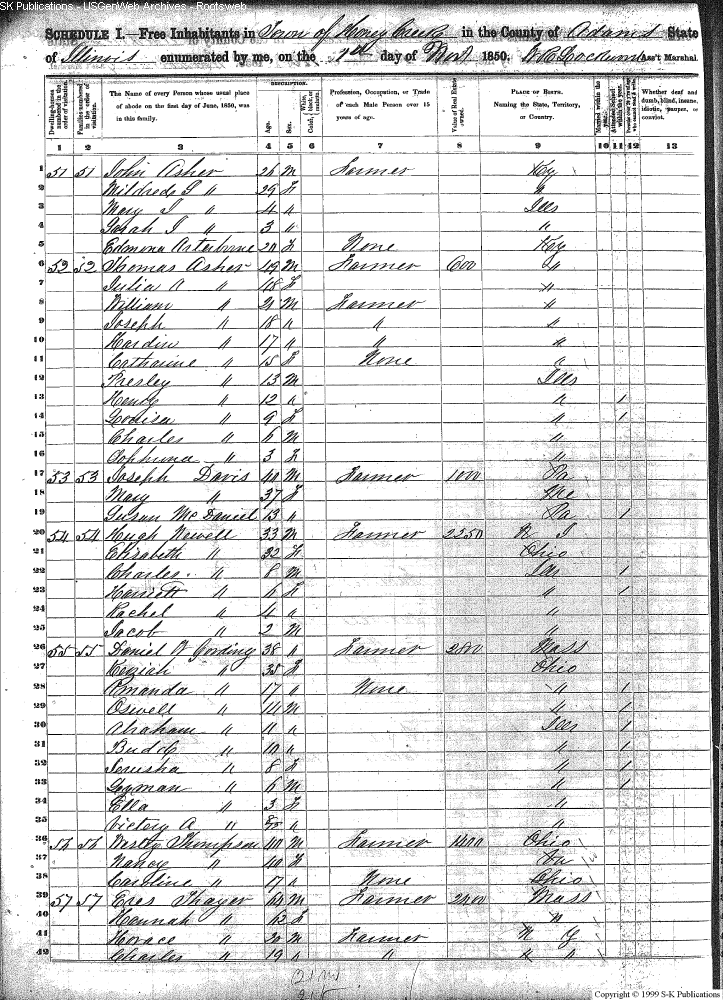 SK Publications - USGenWeb Archives - Rootsweb
SCHEDULE I.—Free Inhabitants in Town of Honey Creek in the County of Adams State
of Illinois enumerated by me, on the day of Nov 1850. Ass't Marshal.
Dwelling-houses numbered in the order of visitation.
Families numbered in the order of visitation.
The Name of every Person whose usual place of abode on the first day of June, 1850, was in this family.
DESCRIPTION.
Age.
Sex.
White, black, or mulatto.
Color,
Profession, Occupation, or Trade of each Male Person over 15 years of age.
Value of Real Estate owned.
PLACE OF BIRTH. Naming the State, Territory, or Country.
Married within the year.
Attended School within the year.
Persons over 20 y'rs of age who cannot read & write.
Whether deaf and dumb, blind, insane, idiotic, pauper, or convict.
1 2 3 4 5 6 7 8 9 10 11 12 13
1 51 51 John Asher 26 M Farmer Ky
2 Mildred " 29 F "
3 Mary J " 4 " Ills
4 Sarah J " 3 " "
5 20 F None Key
6 52 52 Thomas Asher 49 M Farmer 600 "
7 Julia A " 48 F "
8 William " 21 M Farmer "
9 Joseph " 18 " " "
10 Hardin " 17 " " "
11 Catharine " 15 F None "
12 Presley " 13 M Ills
13 Henry " 12 " " 1
14 Louisa " 9 F " 1
15 Charles " 6 M "
16 " 3 F "
17 53 53 Joseph Davis 40 M Farmer 1000 Pa
18 Mary " 37 F Me
19 Susan McDaniel 13 " Pa 1
20 54 54 Hugh Newell 33 M Farmer 2250 R I
21 Elizabeth " 32 F Ohio
22 Charles " 8 M Ills 1
23 Harriett " 6 F " 1
24 Rachel " 4 " "
25 Jacob " 2 M "
26 55 55 Daniel W Gording 38 " Farmer 2800 Mass
27 Keziah " 35 F Ohio
28 Amanda " 17 " None " 1
29 Oswell " 14 M " 1
30 Abraham " 11 " Ills 1
31 " 10 " " 1
32 Jerusha " 8 F " 1
33 Lyman " 6 M " 1
34 Ella " 3 F "
35 Victory A " "
36 56 56 Thompson 40 M Farmer 1400 Ohio
37 Nancy " 40 F
38 Caroline " 17 " None Ohio
39 57 57 Thayer 64 M Farmer 2400 Mass
40 Hannah " 62 F "
41 Horace " M Farmer N Y
42 Charles " 19 " " " "
Copyright © 1999 S-K Publications